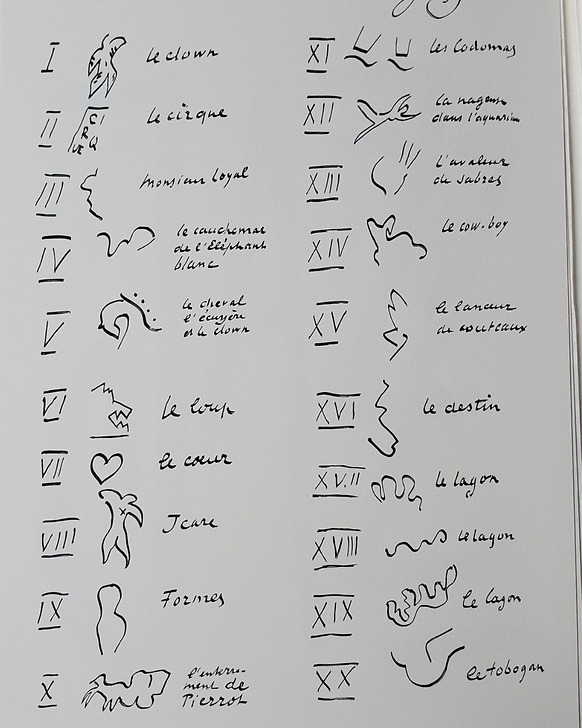 I le clown
II CI R Q UE le cirque
III monsieur Loyal
IV le cauchemar
de l'Eléphant
blanc
V le cheval
l'écuyère
et le clown
VI le loup
VII le cœur
VIII Icare
IX Formes
X l'enterre-
ment de
Pierrot
XI les Codomas
XII la nageuse
dans l'aquarium
XIII l'avaleur
de sabres
XIV le cow-boy
XV le lanceur
de couteaux
XVI le destin
XVII le lagon
XVIII le lagon
XIX le lagon
XX le tobogan